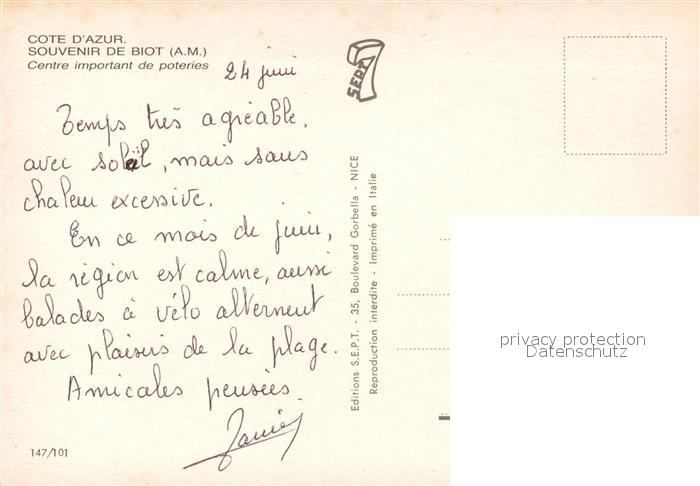 COTE D'AZUR.
SOUVENIR DE BIOT (A.M.)
Centre important de poteries
24 juin
Temps très agréable,
avec soleil, mais sans
chaleur excessive.
En ce mois de juin,
la région est calme, aussi
balades à vélo alternent
avec plaisirs de la plage.
Amicales pensées.
147/101
SEPT 7
Editions S.E.P.T. - 35, Boulevard Gorbella - NICE
Reproduction interdite - Imprimé en Italie
privacy protection
Datenschutz